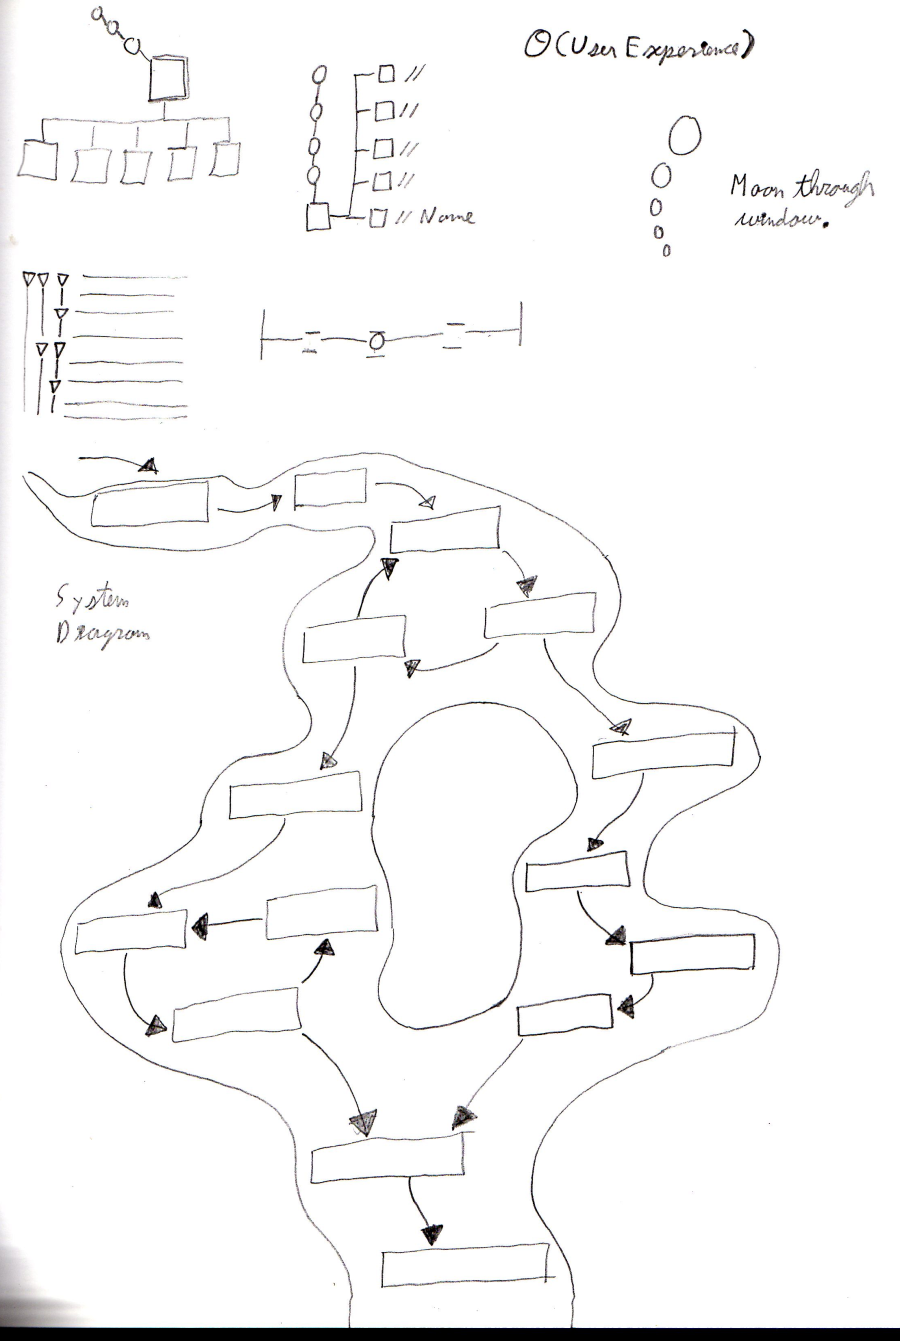 Θ(User Experience)
// Name
Moon through
window.
System
Diagram